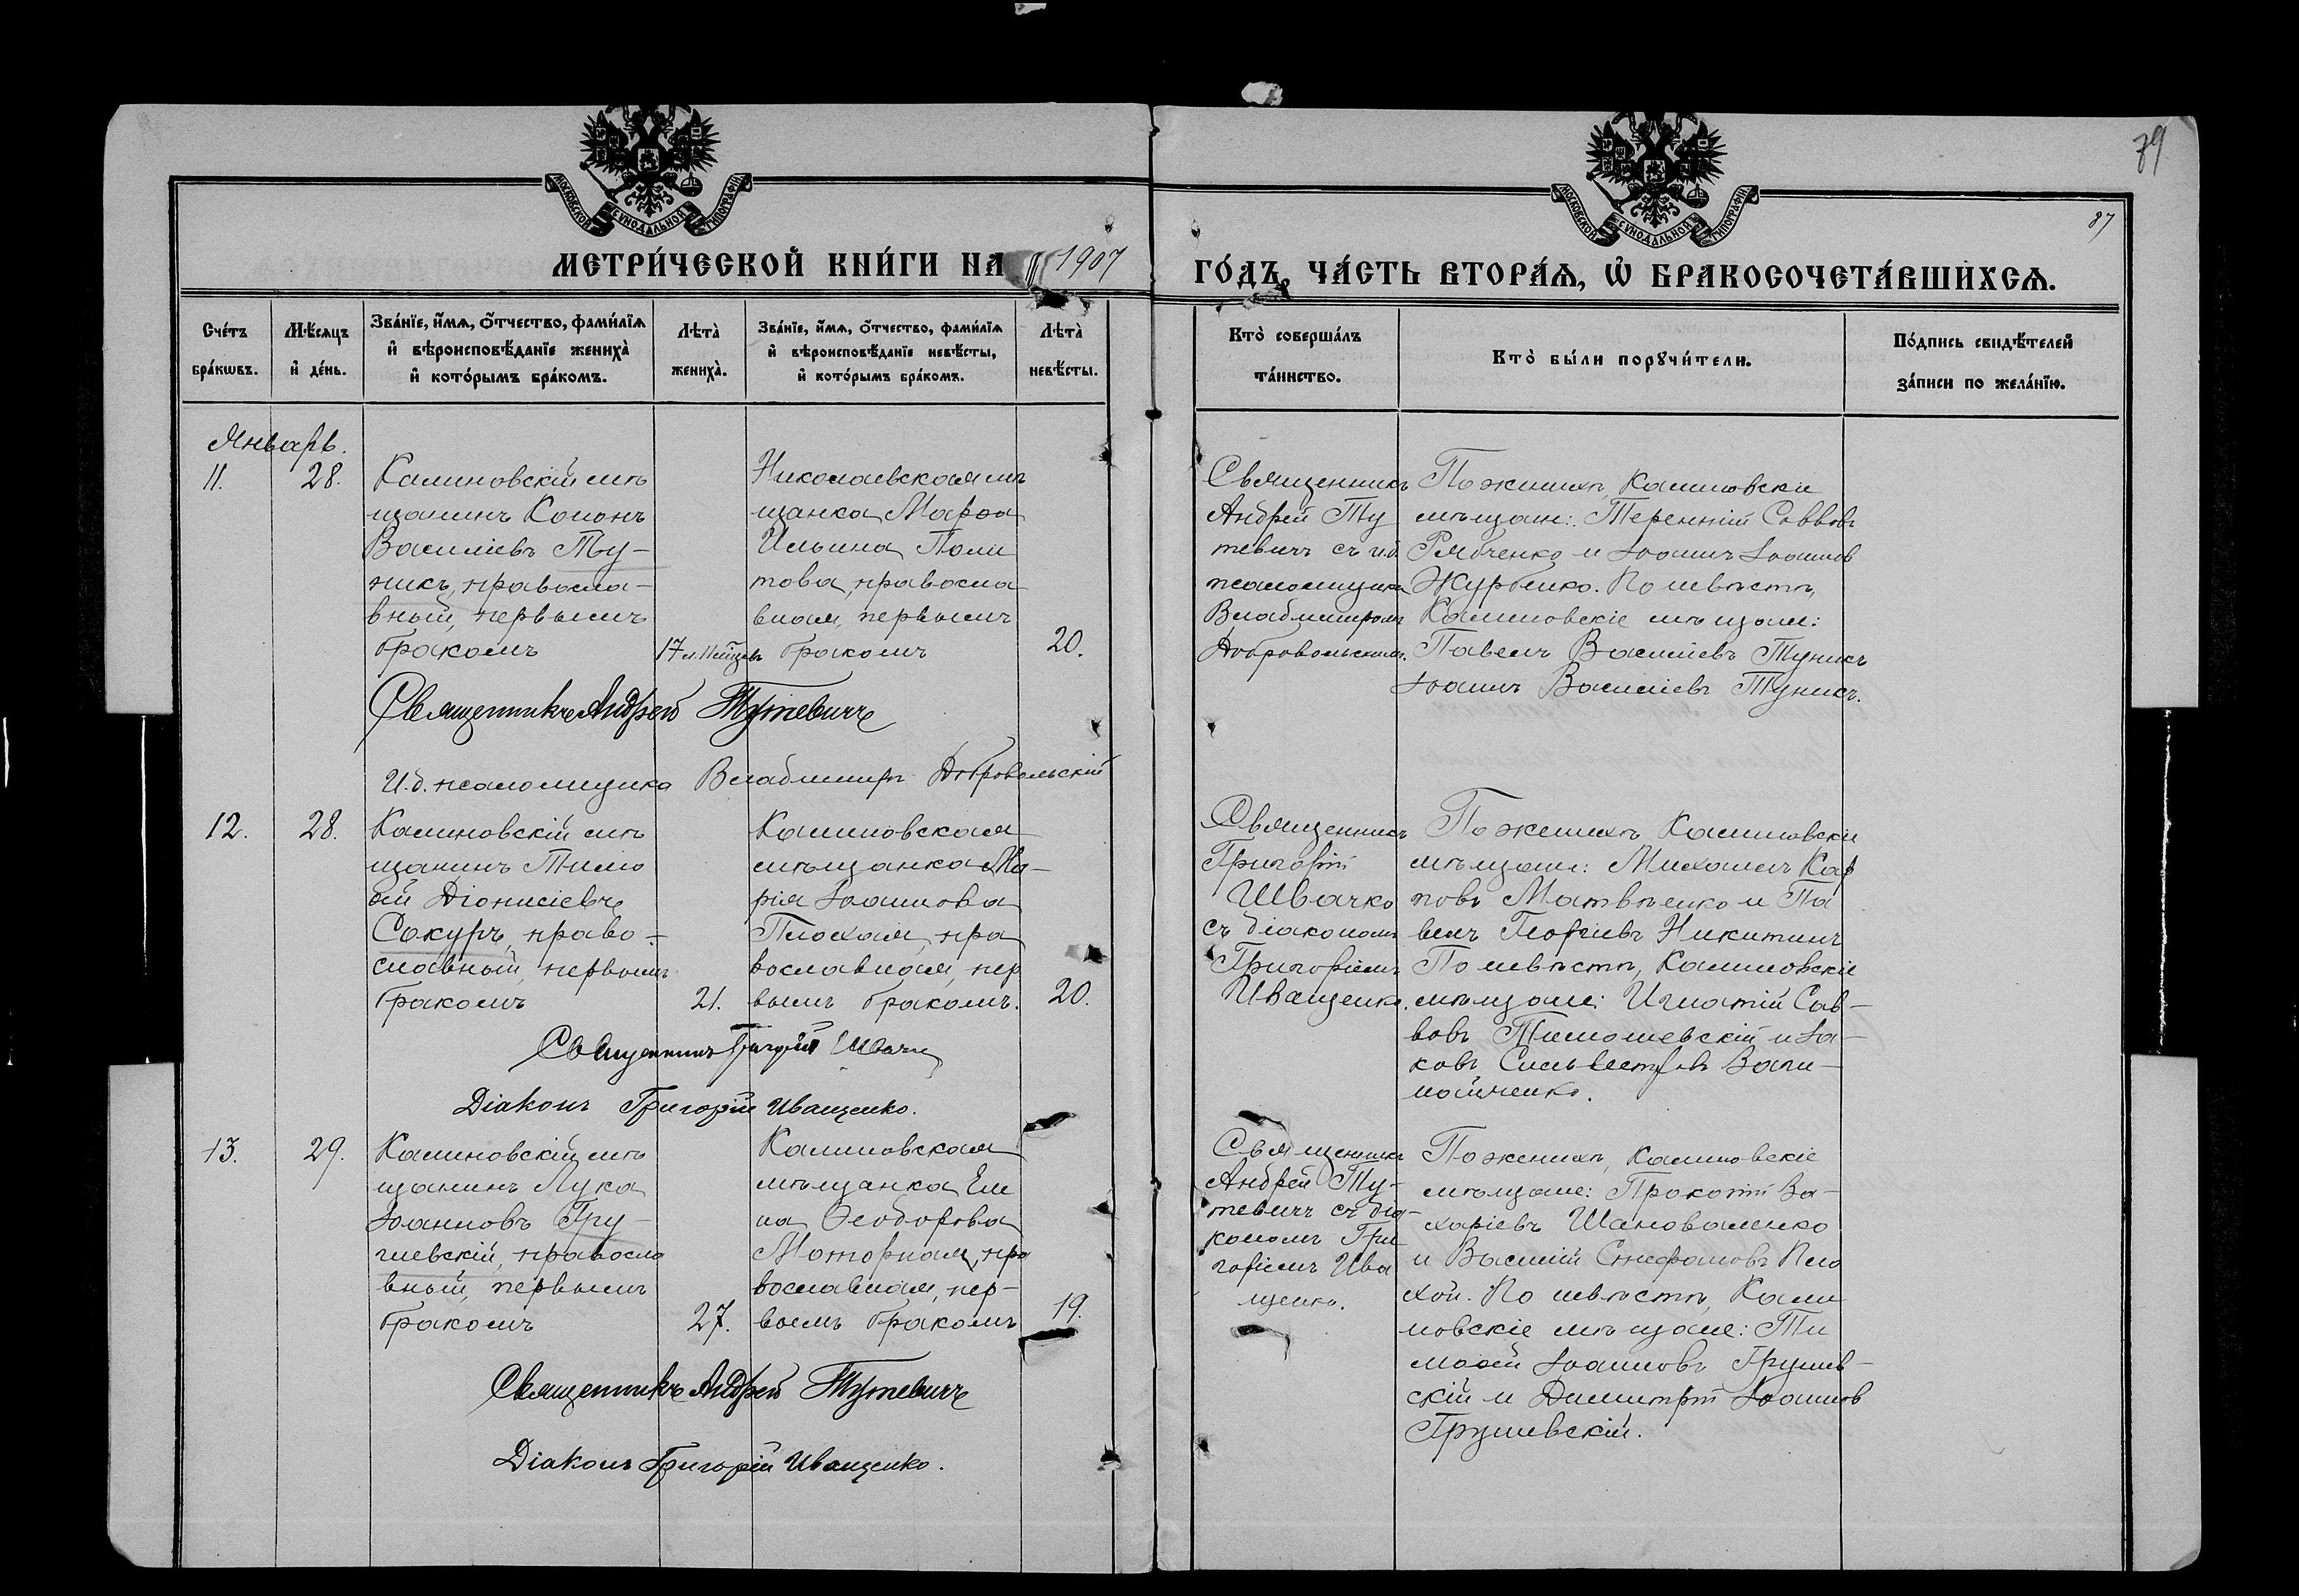 79
87
МОСКОВСКОЙ СѴНОДАЛЬНОЙ ТИПОГРАФІИ
МОСКОВСКОЙ СѴНОДАЛЬНОЙ ТИПОГРАФІИ
МЕТРИ́ЧЕСКОЙ КНИ́ГИ НА 1907
ГО́ДЪ, ЧА́СТЬ ВТОРА́Ѧ, Ѡ҆ БРАКОСОЧЕТА́ВШИХСѦ.
Сче́тъ
бра́кѡвъ.
Мѣ́сѧцъ
и҆ де́нь.
Зва́нїе, и҆́мѧ, ѻ҆́тчество, фами́лїѧ
и҆ вѣроисповѣ́данїе жениха̀
и҆ кото́рымъ бра́комъ.
Лѣта̀
жениха̀.
Зва́нїе, и҆́мѧ, ѻ҆́тчество, фами́лїѧ
и҆ вѣроисповѣ́данїе невѣ́сты,
и҆ кото́рымъ бра́комъ.
Лѣта̀
невѣ́сты.
Кто̀ соверша́лъ
та́инство.
Кто̀ бы́ли порꙋчи́тели.
По́дпись свидѣ́телей
за́писи по жела́нїю.
Январь.
11.
28.
Калиновскій мѣ
щанинъ Кононъ
Василіевъ Ту-
никъ, правосла-
вный, первымъ
бракомъ
17
Николаевская мѣ
щанка Марѳа
Ильина Поли
това, правосла
вная, первымъ
бракомъ
20.
Священникъ
Андрей Ту
тевичъ съ и.д.
псаломщика
Владиміромъ
Добровольскимъ.
По женихѣ, Калиновскіе
мѣщане: Терентій Саввовъ
Рябченко и Іоаннъ Іоанновъ
Журбенко. По невѣстѣ,
Калиновскіе мѣщане:
Павелъ Василіевъ Туникъ
Іоаннъ Василіевъ Туникъ.
Священникъ Андрей Тутевичъ
И.д. псаломщика Владиміръ Добровольскій
12.
28.
Калиновскій мѣ
щанинъ Тимо
ѳей Діонисіевъ
Сокуръ, право-
славный, первымъ
бракомъ
21.
Калиновская
мѣщанка Ма-
рія Іоаннова
Плохая, пра
вославная, пер
вымъ бракомъ.
20.
Священникъ
Григорій
Швачко
съ діакономъ
Григоріемъ
Иващенко.
По женихѣ Калиновскіе
мѣщане: Михаилъ Кар
повъ Матвѣенко и Па
велъ Георгіевъ Никитинъ
По невѣстѣ, Калиновскіе
мѣщане: Игнатій Сав-
вовъ Тимошевскій и Іа-
ковъ Сильвестровъ
Священникъ Григорій Швачко
Діаконъ Григорій Иващенко.
13.
29.
Калиновскій мѣ
щанинъ Лука
Іоанновъ Гру-
шевскій, правосла
вный, первымъ
бракомъ
27.
Калиновская
мѣщанка Еле
на Ѳеодорова
Моторная, пра
вославная, пер-
вымъ бракомъ
19.
Священникъ
Андрей Ту-
тевичъ съ діа-
кономъ Гри
горіемъ Ива
щенко.
По женихѣ, Калиновскіе
мѣщане: Прокопій За-
харіевъ Шаповаленко
и Василій Стефановъ Пло
хой. По невѣстѣ, Кали
новскіе мѣщане: Ти
моѳей Іоанновъ Грушев-
скій и Димитрій Іоанновъ
Грушевскій.
Священникъ Андрей Тутевичъ
Діаконъ Григорій Иващенко.